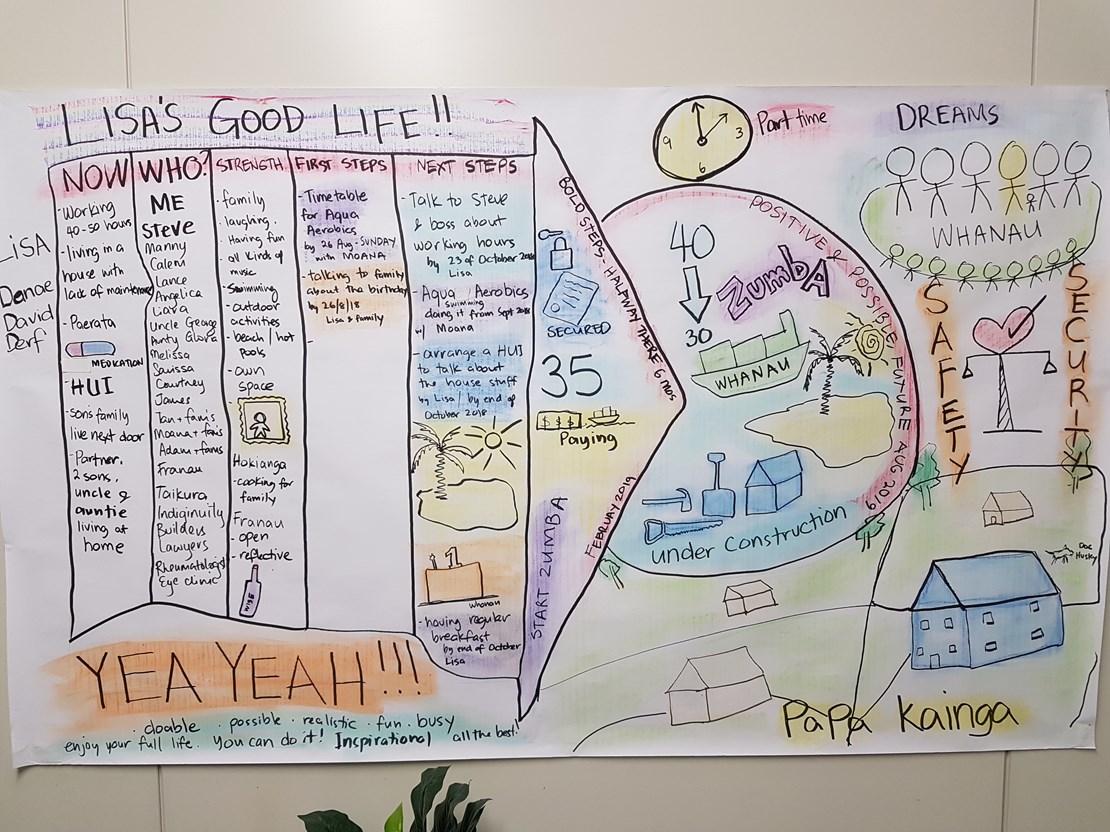 LISA'S GOOD LIFE!!
LISA
David
Derf
NOW
- Working
40-50 hours
- living in a
house with
lack of maintenance
- Paerata
MEDICATION
HUI
- sons family
live next door
- Partner,
2 sons,
uncle &
auntie
living at
home
WHO?
ME
Steve
Manny
Caleni
Lance
Angelica
Lara
Uncle George
Aunty Gloria
Melissa
Courtney
James
Ian + fam's
Moana + fam's
Adam + fam's
Franau
Taikura
Indiginuity
Builders
Lawyers
Rheumatologist
Eye clinic
STRENGTH
- family
- laughing,
- Having fun
- all kinds of
music
- Swimming
- outdoor
activities
- beach / hot
pools
- own
space
Hokianga
- cooking for
family
Franau
- open
- reflective
FIRST STEPS
- Timetable
for Aqua
Aerobics
by 26 Aug - SUNDAY
with MOANA
- talking to family
about the birthday
by 26/8/18
Lisa & family
-
NEXT STEPS
- Talk to Steve
& boss about
working hours
by 23 of October 2018
Lisa
- Aqua Aerobics
swimming
doing it from Sept 2018
w/ Moana
- arrange a HUI
to talk about
the house stuff
by Lisa / by end of
October 2018
1
Whanau
- having regular
breakfast
by end of October
Lisa
BOLD STEPS - HALFWAY THERE 6 MOS
FEBRUARY 2019
SECURED
35
$ $ $
Paying
START ZUMBA
9 3
6
Part time
POSITIVE & POSSIBLE FUTURE AUG 2019
40
30
ZUMBA
WHANAU
under construction
DREAMS
WHANAU
SAFETY
SECURITY
Dog
Husky
Papa Kainga
YEA YEAH!!!
· doable · possible · realistic · fun · busy
enjoy your full life. you can do it! Inspirational all the best!